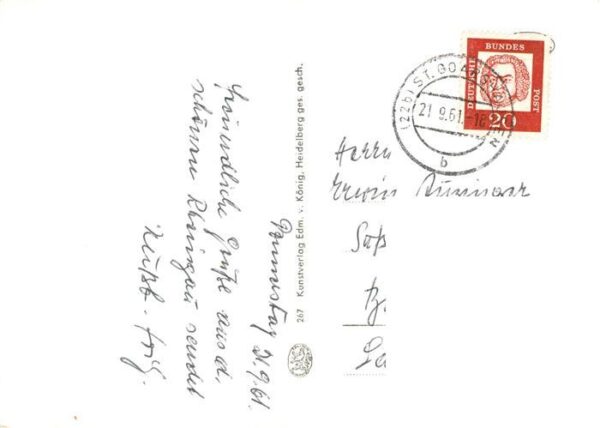 Donnerstag 21.9.61.
Freundliche Grüße aus d.
schönen Rheingau sendet
267 Kunstverlag Edm. v. König, Heidelberg ges. gesch.
DEUTSCHE BUNDES POST
20
(22b) ST. GOARSHAUSEN
21.9.61.-18
b
Herrn
Erwin